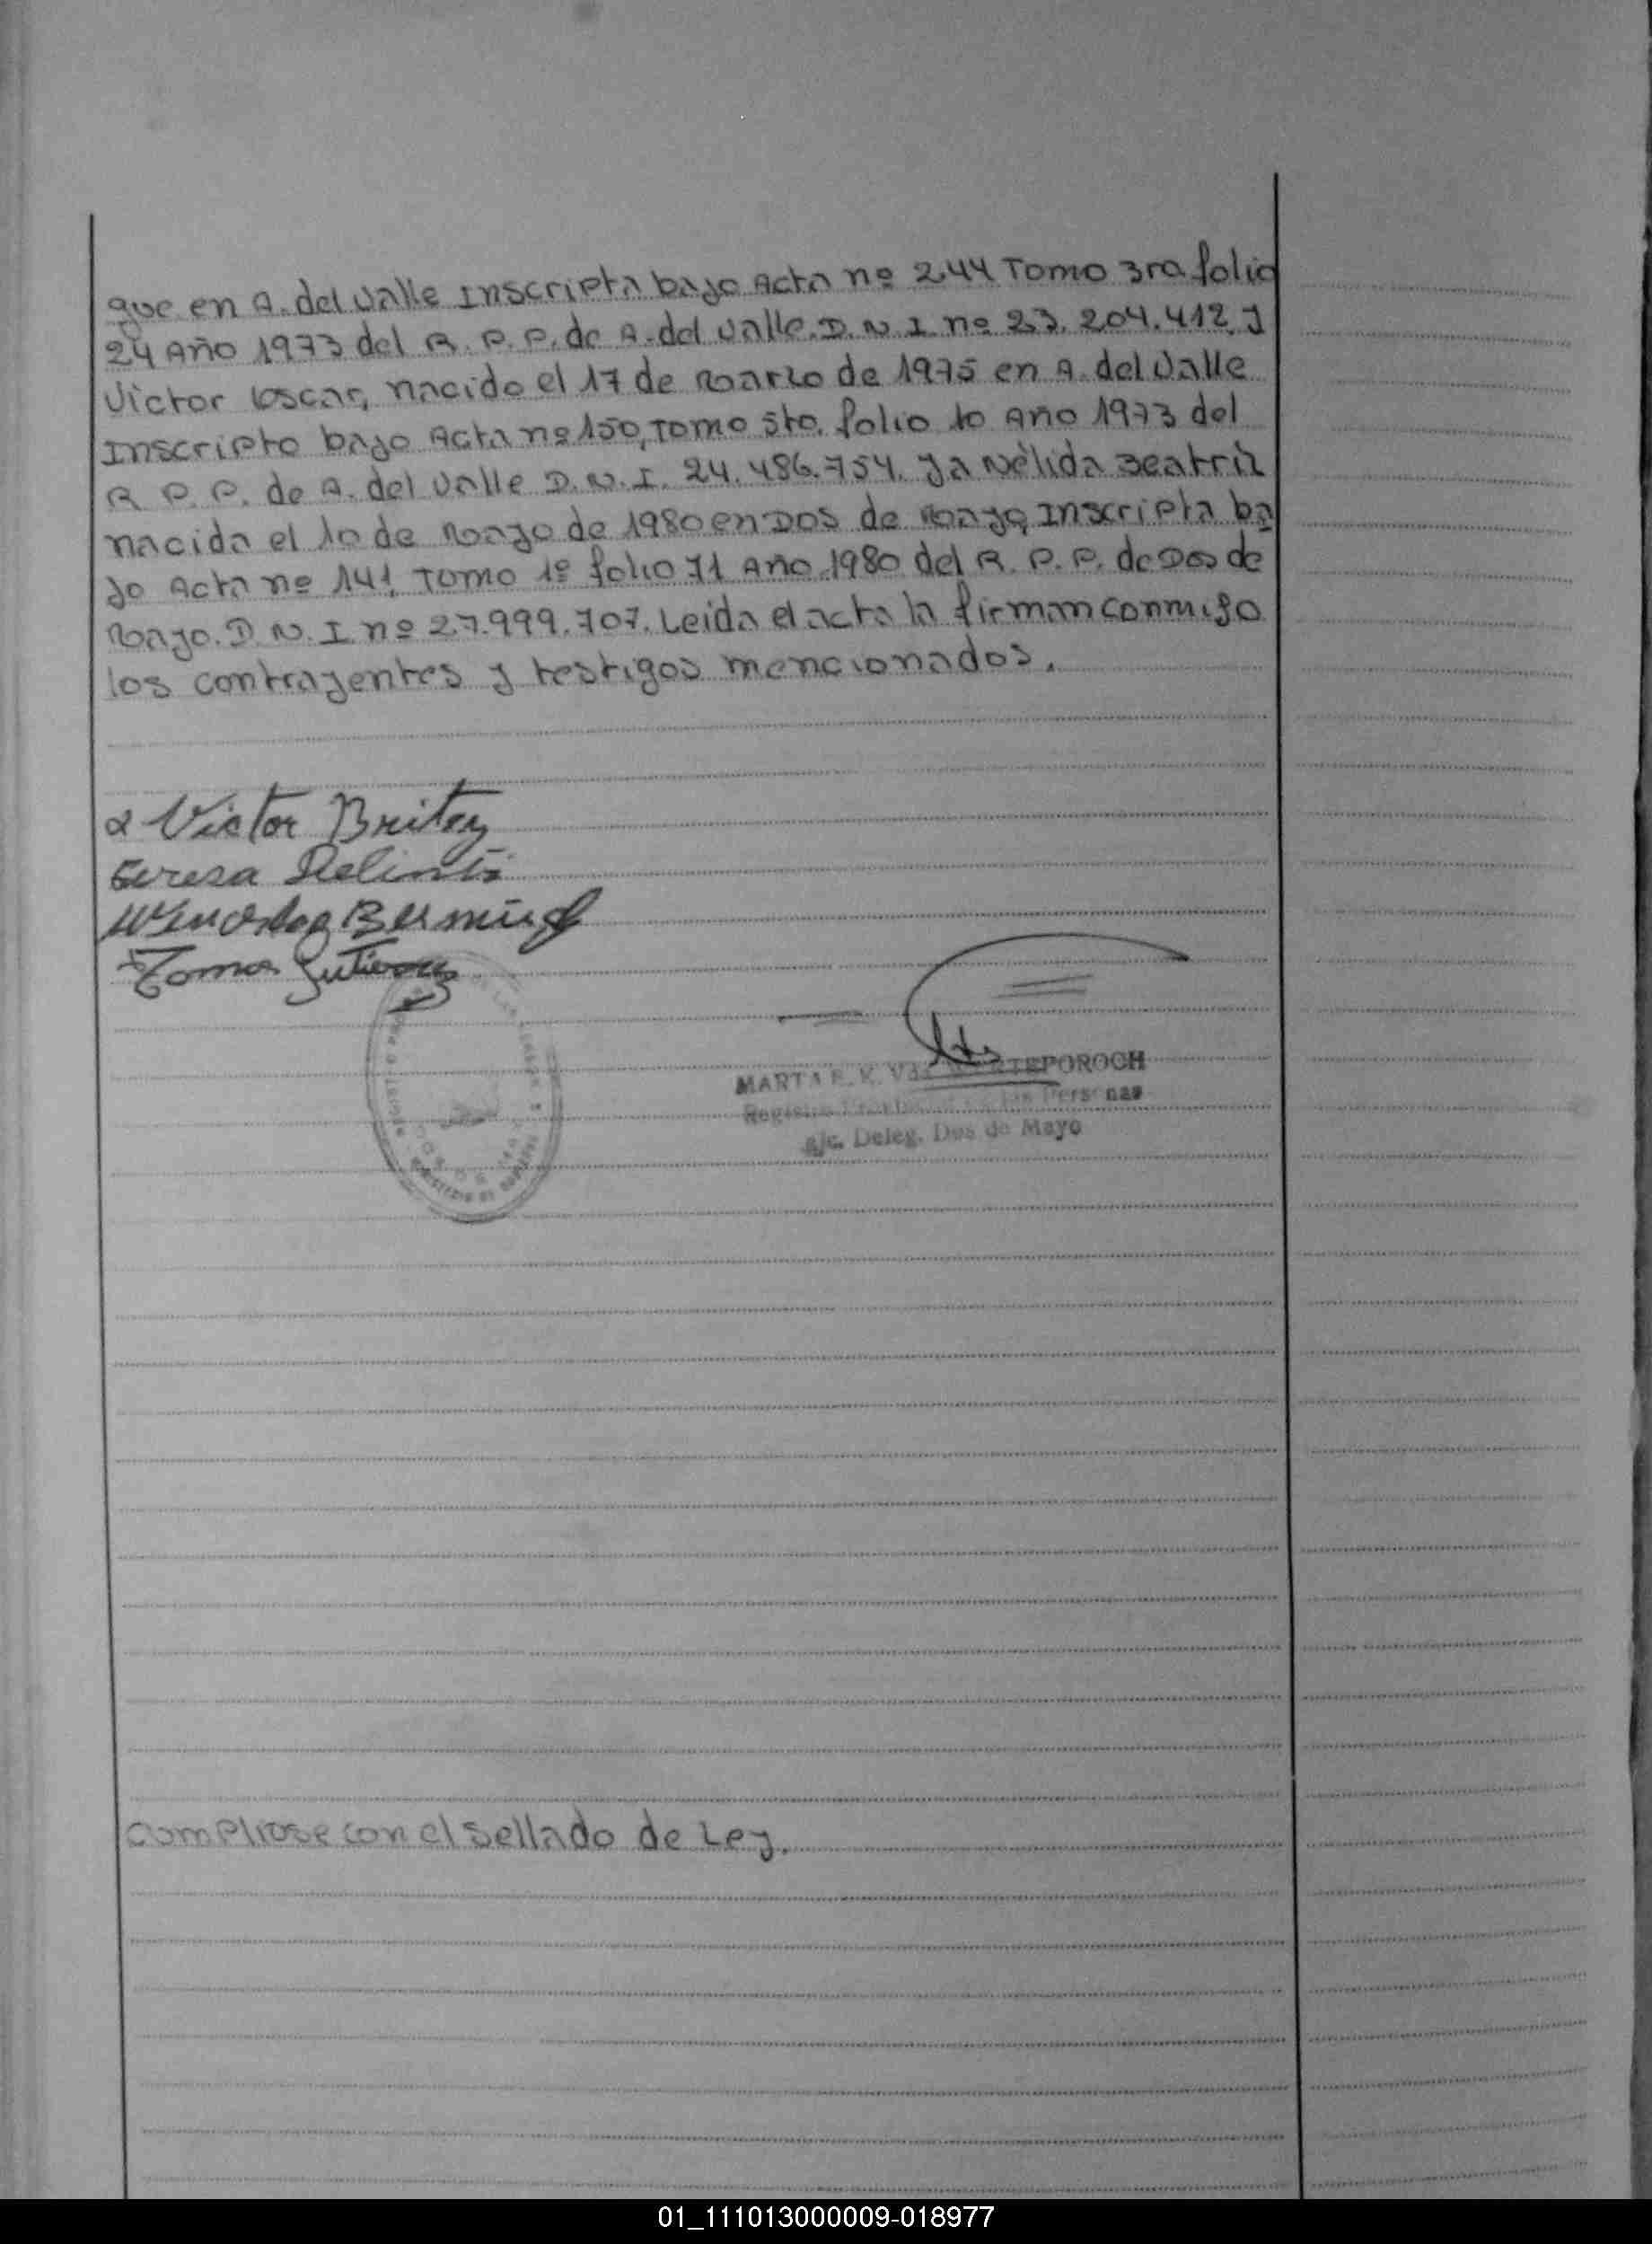 que en A. del Valle Inscripta bajo Acta nº 244 Tomo 3ro. folio
24 Año 1973 del R. P. P. de A. del Valle. D. N. I. nº 23.204.412. y
Victor Oscar, nacido el 17 de Marzo de 1975 en A. del Valle
Inscripto bajo Acta nº 150, Tomo 5to. folio 10 Año 1973 del
R. P. P. de A. del Valle D. N. I. 24.486.754. ya Nélida Beatriz
nacida el 10 de Mayo de 1980 en Dos de Mayo, Inscripta ba
jo Acta nº 141, Tomo 1º folio 71 Año 1980 del R. P. P. de Dos de
Mayo. D. N. I. nº 27.999.707. Leida el acta la firman conmigo
los contrayentes y testigos mencionados.
Victor Britez
Teresa
Tomas Gutierrez
MARTA
Registro Personas
Deleg. Dos de Mayo
Compliose con el Sellado de Ley.
01_111013000009-018977